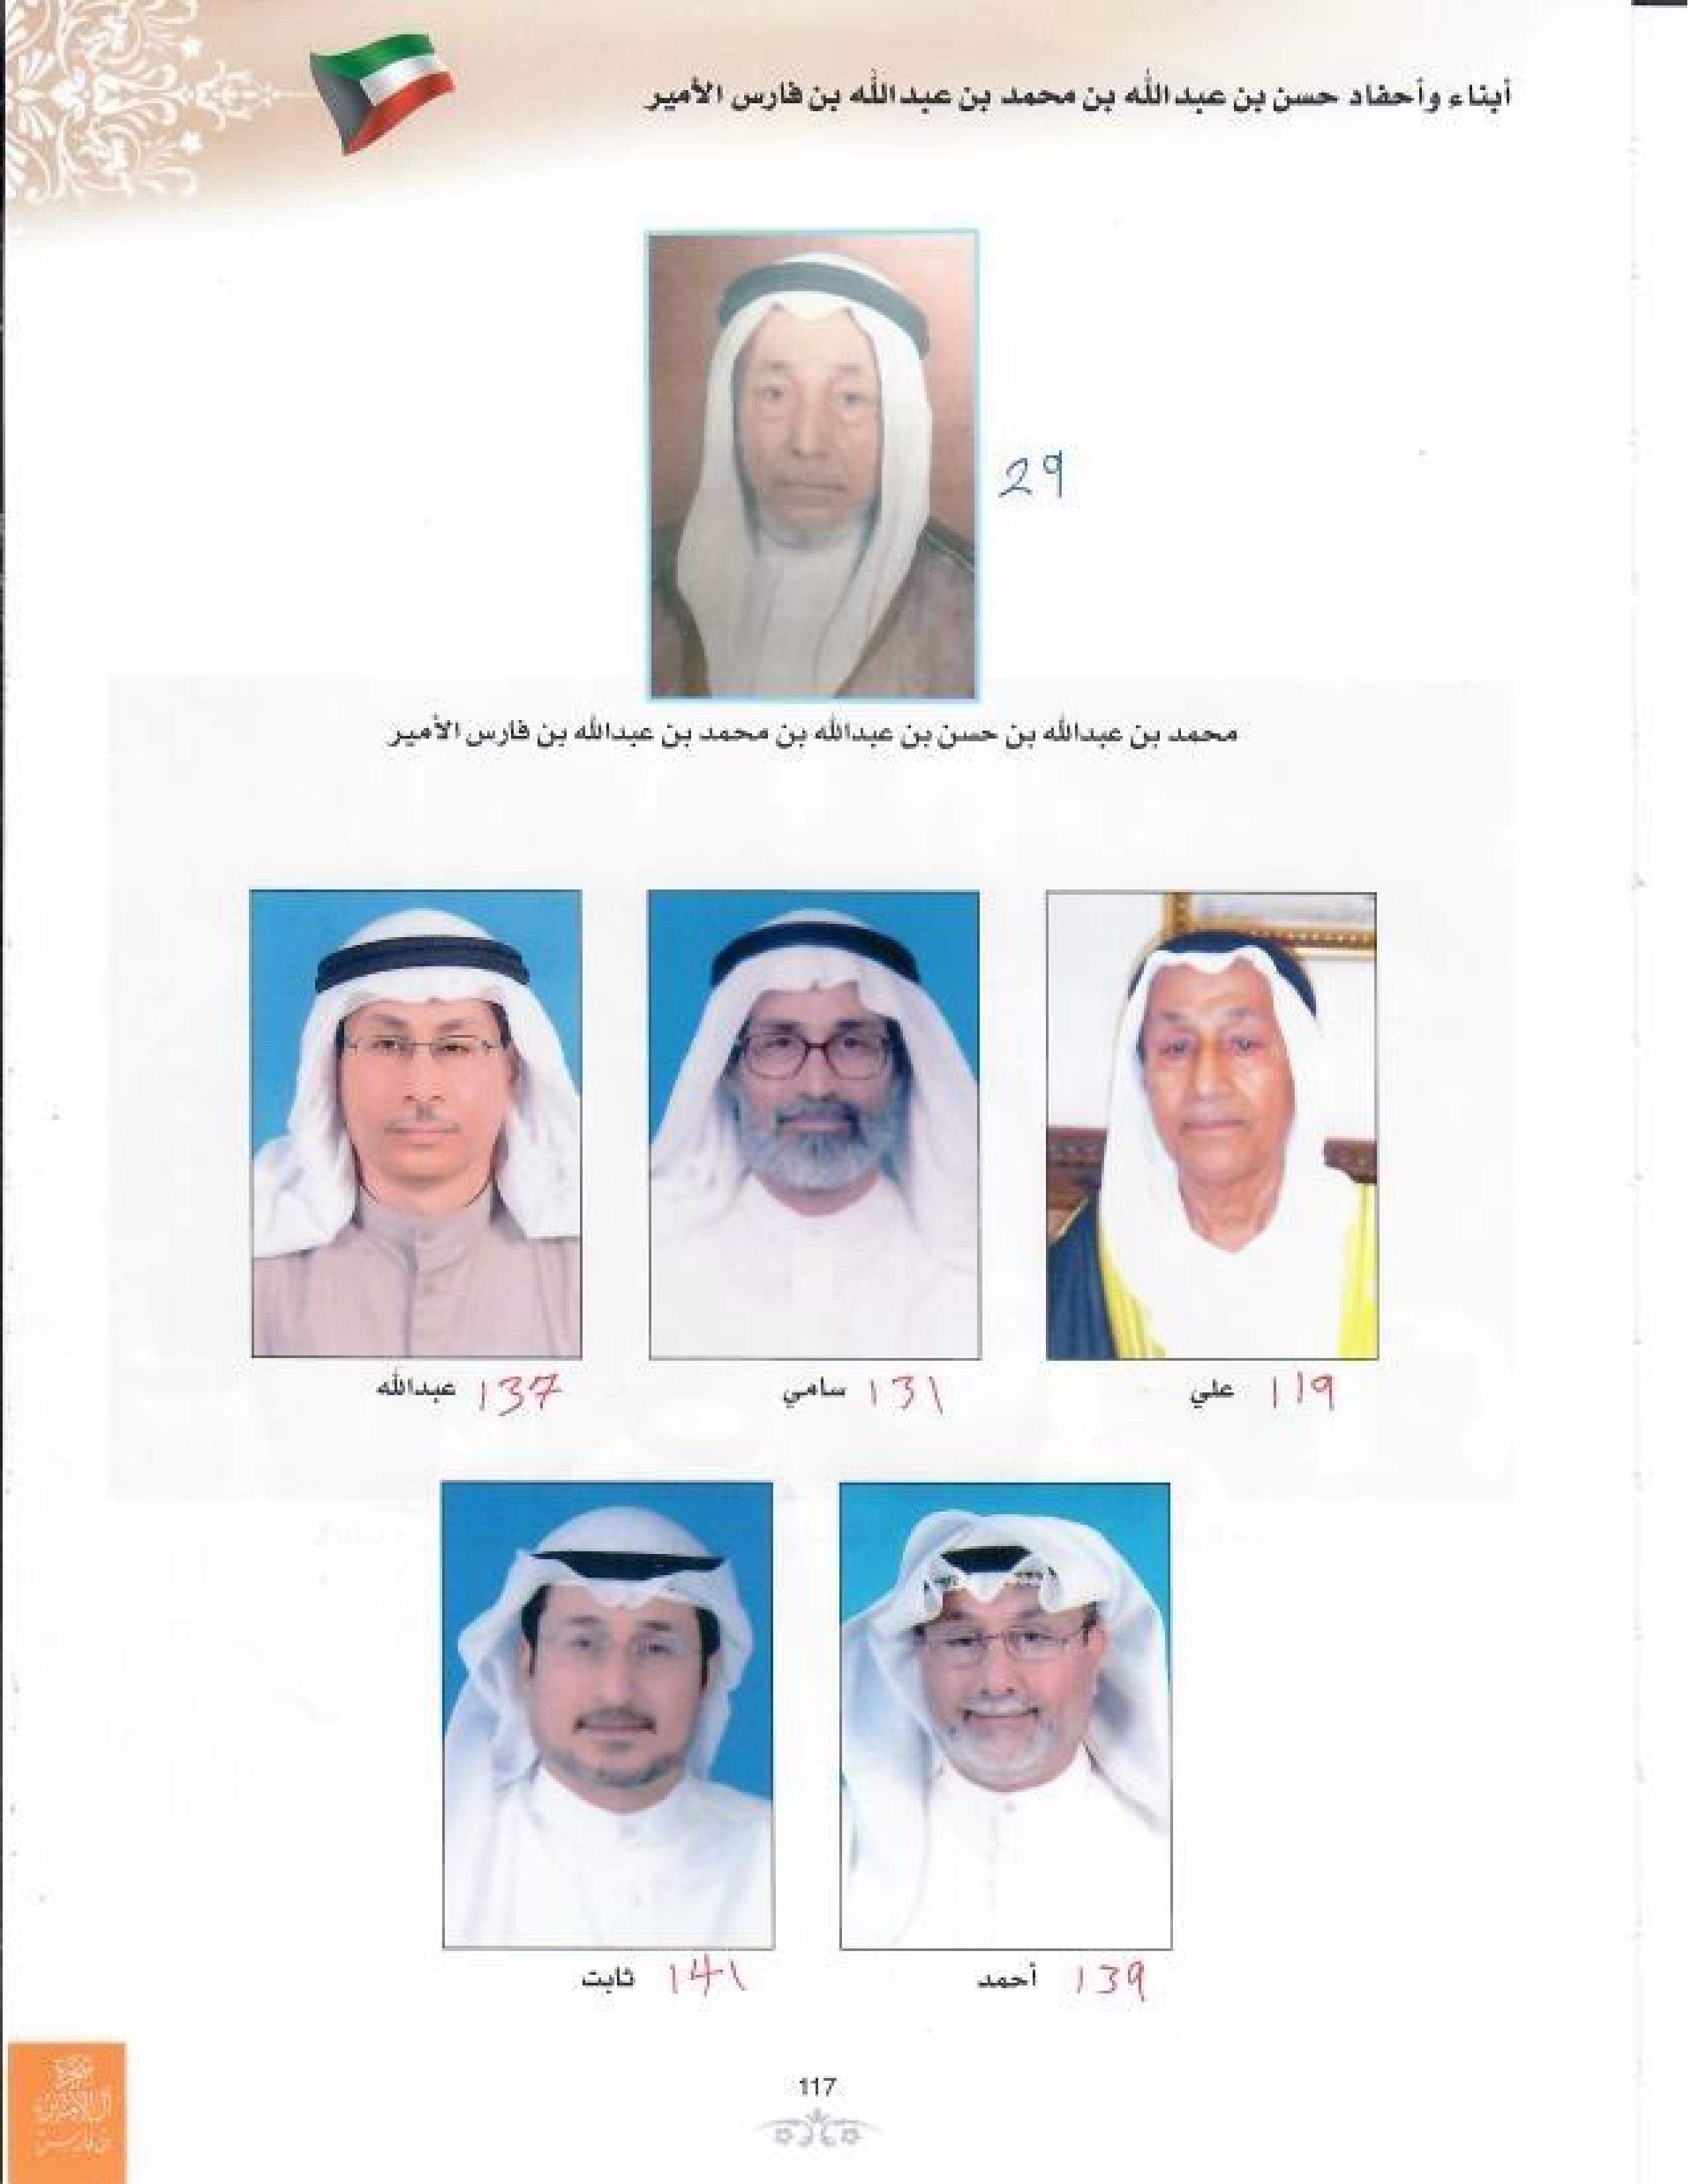 أبناء وأحفاد حسن بن عبدالله بن محمد بن عبدالله بن فارس الأمير
29
محمد بن عبدالله بن حسن بن عبدالله بن محمد بن عبدالله بن فارس الأمير
علي 119
سامي 131
عبدالله 137
أحمد 139
ثابت 141
117